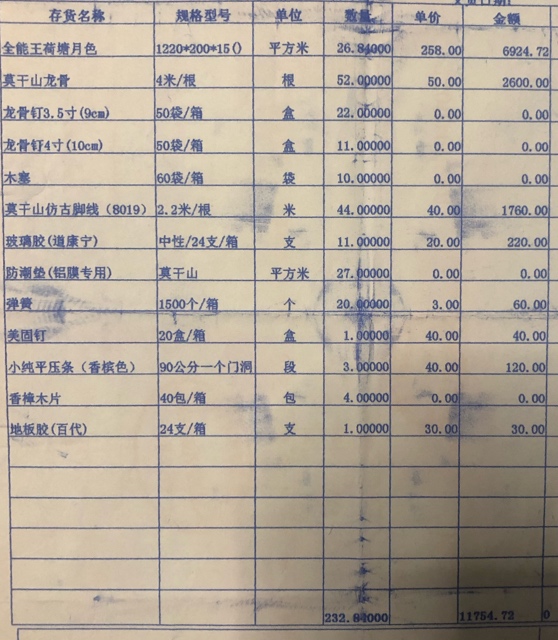 存货名称 规格型号 单位 数量 单价 金额
全能王荷塘月色 1220*200*15() 平方米 26.84000 258.00 6924.72
莫干山龙骨 4米/根 根 52.00000 50.00 2600.00
龙骨钉3.5寸(9cm) 50袋/箱 盒 22.00000 0.00 0.00
龙骨钉4寸(10cm) 50袋/箱 盒 11.00000 0.00 0.00
木塞 60袋/箱 袋 10.00000 0.00 0.00
莫干山仿古脚线（8019） 2.2米/根 米 44.00000 40.00 1760.00
玻璃胶(道康宁) 中性/24支/箱 支 11.00000 20.00 220.00
防潮垫(铝膜专用) 莫干山 平方米 27.00000 0.00 0.00
弹簧 1500个/箱 个 20.00000 3.00 60.00
美固钉 20盒/箱 盒 1.00000 40.00 40.00
小纯平压条（香槟色） 90公分一个门洞 段 3.00000 40.00 120.00
香樟木片 40包/箱 包 4.00000 0.00 0.00
地板胶(百代) 24支/箱 支 1.00000 30.00 30.00
232.84000 11754.72 0